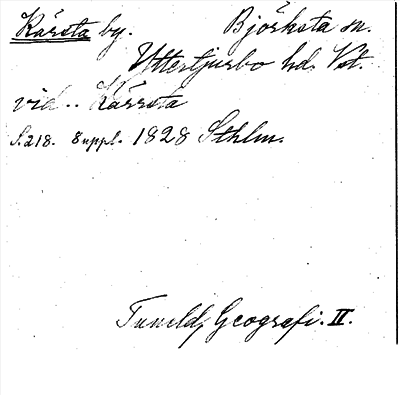 Kärsta by. Björksta sn.
Yttertjurbo hd. Vst.
vid .. Kärrsta
S. 218. 8 uppl. 1828 Sthlm.
Tuneld, Geografi. II.